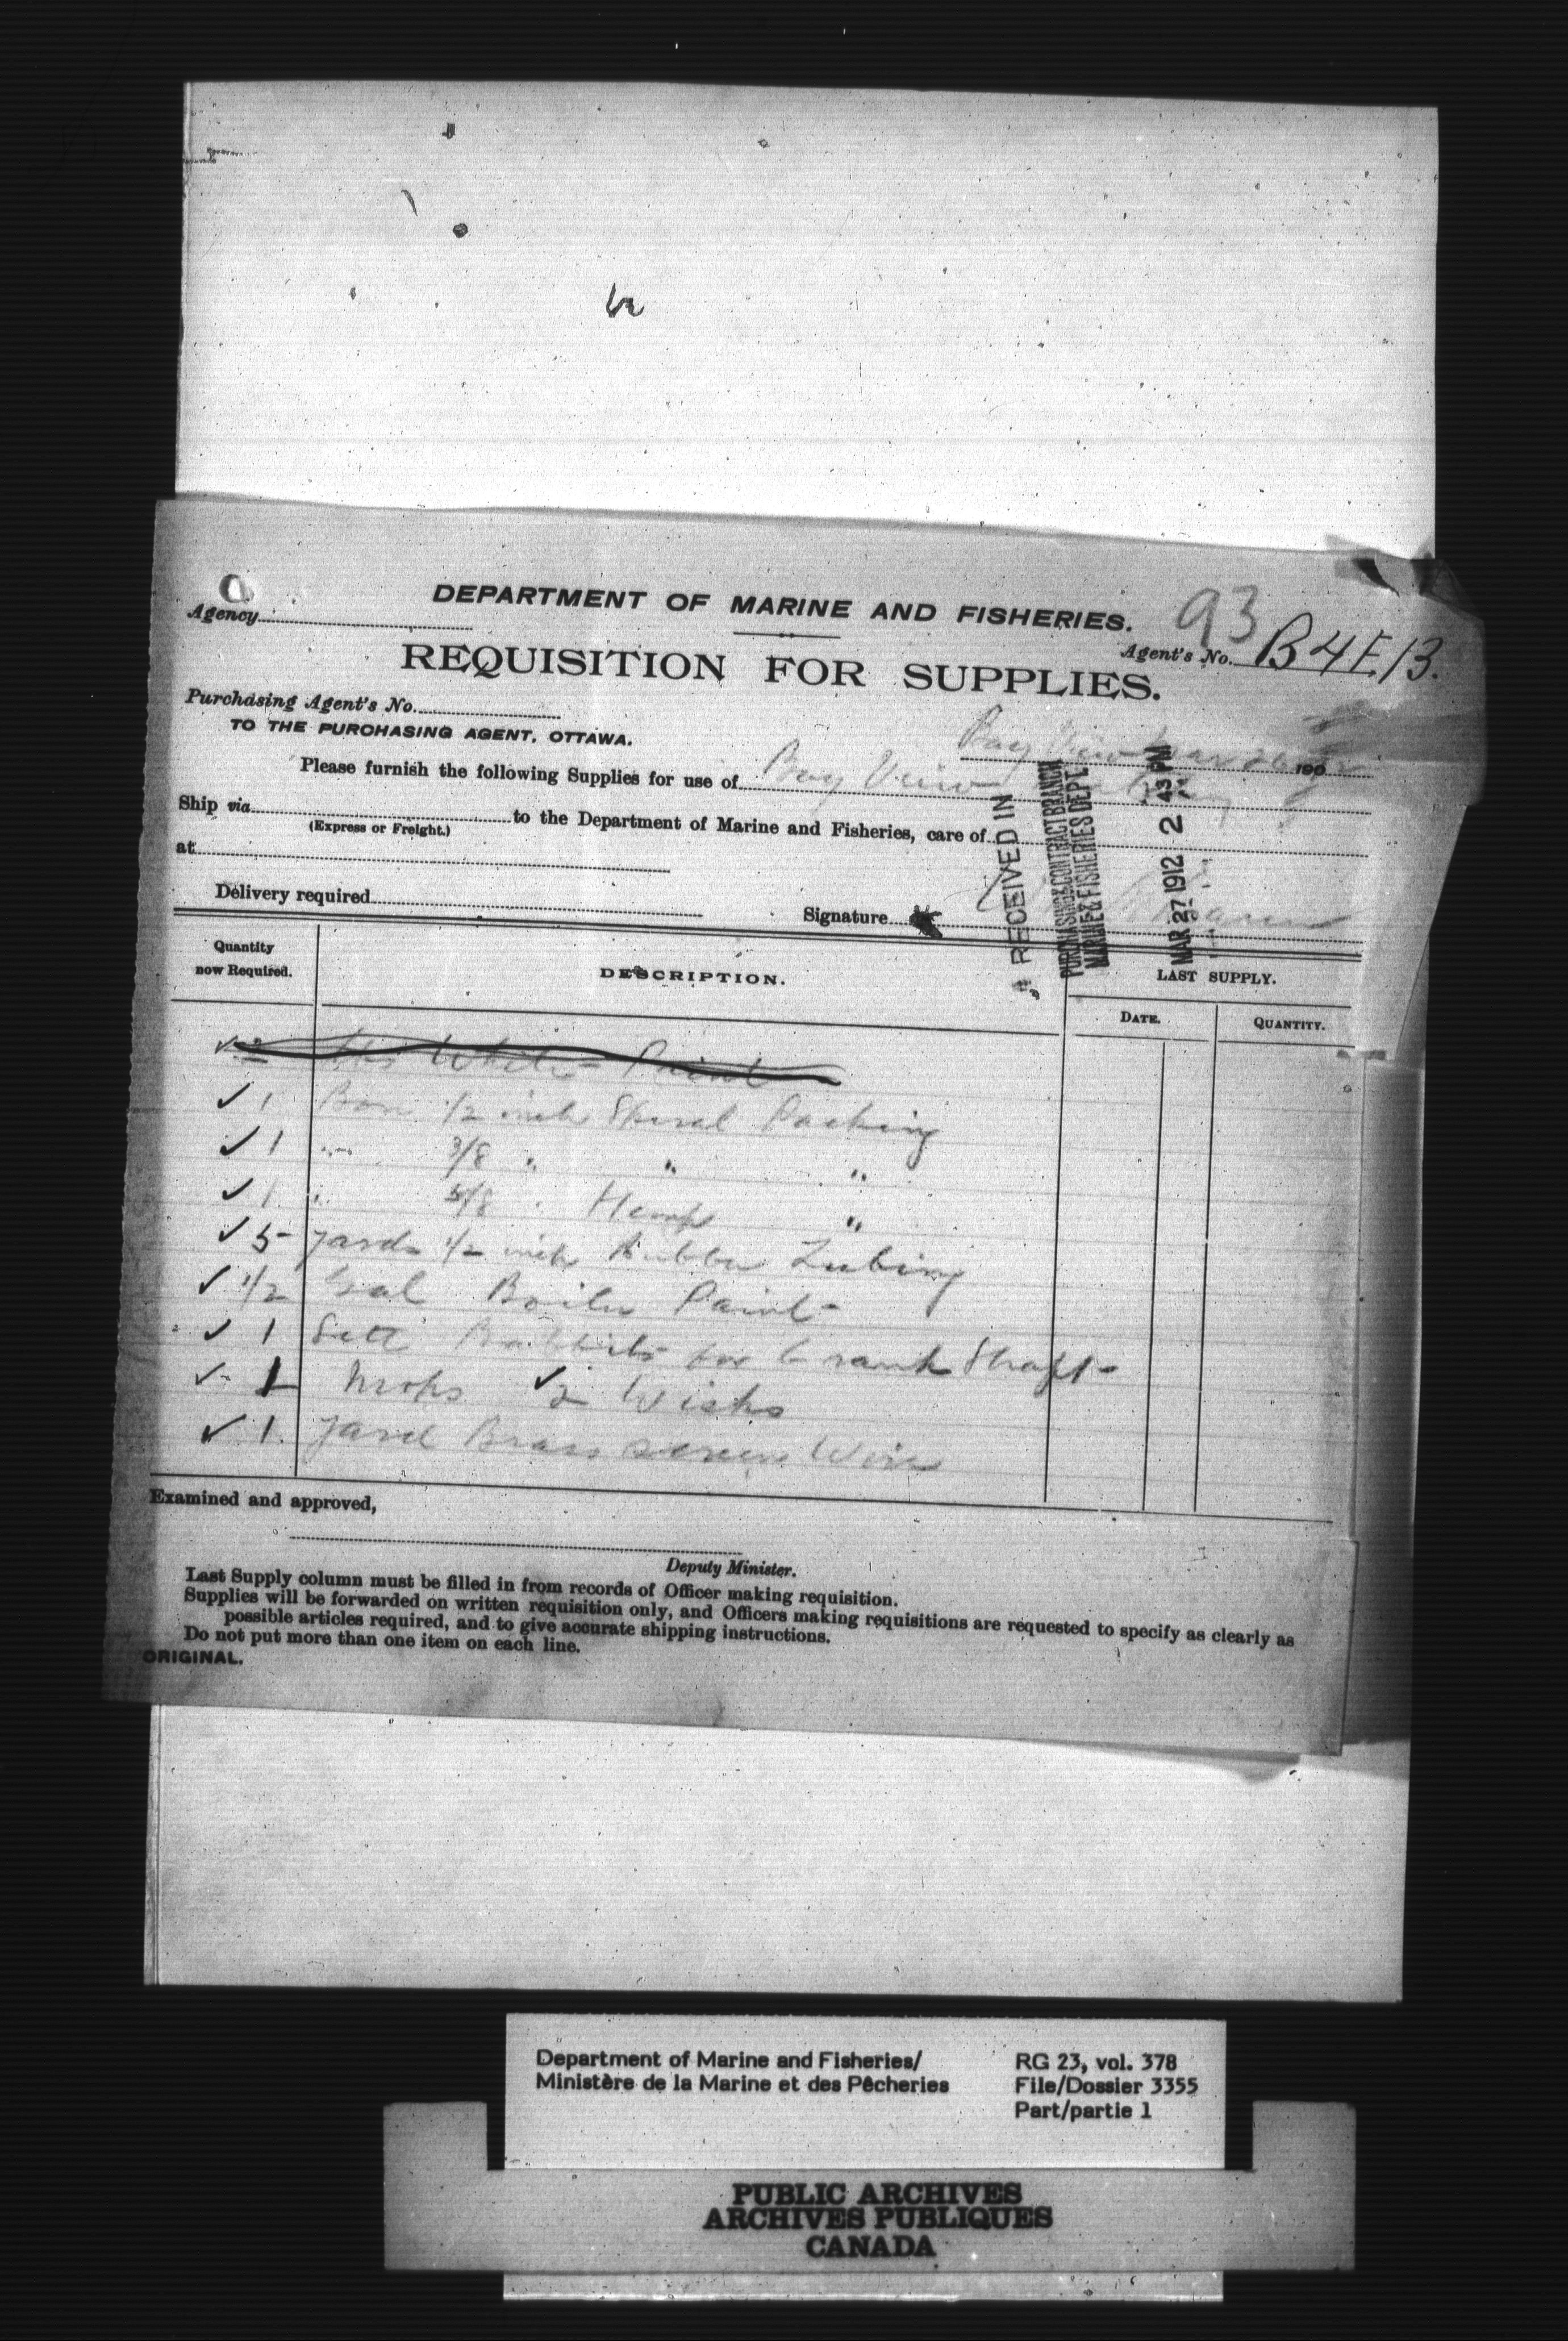 DEPARTMENT OF MARINE AND FISHERIES.
93
Agency
Agent's No. B4F.13.
REQUISITION FOR SUPPLIES.
Purchasing Agent's No.
TO THE PURCHASING AGENT, OTTAWA.
Bay View Mar 26 190
Please furnish the following Supplies for use of Bay View
Ship via to the Department of Marine and Fisheries, care of
(Express or Freight.)
at
Delivery required
Signature
RECEIVED IN
PURCHASING & CONTRACT BRANCH
MARINE & FISHERIES DEPT.
MAR 27 1912 2 43 PM
Quantity now Required.
DESCRIPTION.
LAST SUPPLY.
DATE.
QUANTITY.
White Paint
✓ 1 Box 1/2 inch Spiral Packing
✓ 1 " 3/8 " " "
✓ 1 " 5/8 " Hemp "
✓ 5 yards 1/2 inch Rubber Tubing
✓ 1/2 Gal Boiler Paint
✓ 1 Sett Babbits for Crank Shaft
✓ 1 Mops ✓ 2 Wisks
✓ 1 Yard Brass screen Wire
Examined and approved,
Deputy Minister.
Last Supply column must be filled in from records of Officer making requisition.
Supplies will be forwarded on written requisition only, and Officers making requisitions are requested to specify as clearly as
possible articles required, and to give accurate shipping instructions.
Do not put more than one item on each line.
ORIGINAL.
Department of Marine and Fisheries/
Ministère de la Marine et des Pêcheries
RG 23, vol. 378
File/Dossier 3355
Part/partie 1
PUBLIC ARCHIVES
ARCHIVES PUBLIQUES
CANADA